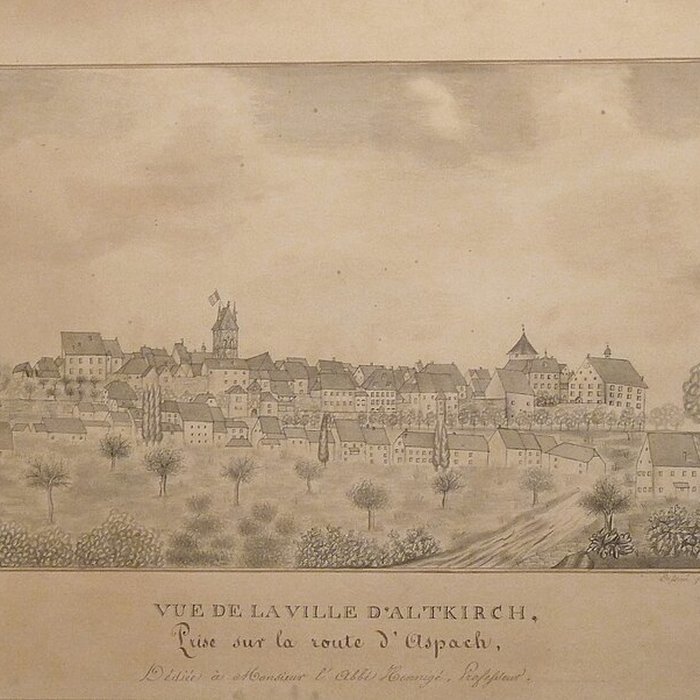 VUE DE LA VILLE D'ALTKIRCH.
Prise sur la route d'Aspach,
Dédiée à Monsieur l'Abbé Professeur.